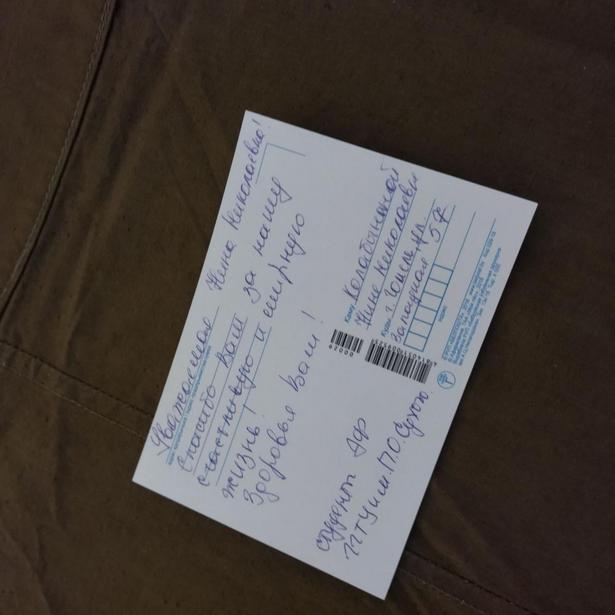 Уважаемая Нина Николаевна!
спасибо Вам за нашу
счастливую и мирную
жизнь!
Здоровья Вам!
студенты АФ
ГГТУ им. П.О. Сухого
Кому Колабыниной
Нине Николаевне
Куда г. Гомель, ул.
Западная, 5
00029